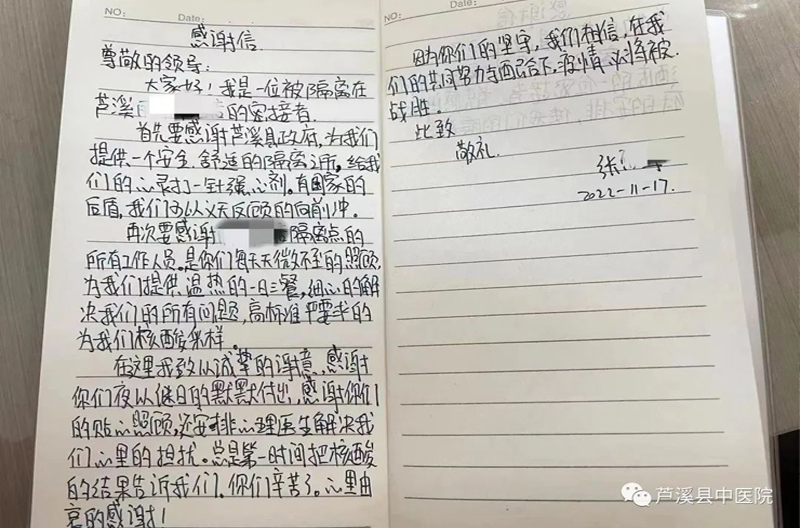 NO:
Date:
感谢信
尊敬的领导:
大家好!我是一位被隔离在
芦溪 的密接者.
首先要感谢芦溪县政府,为我们
提供一个安全、舒适的隔离之所,给我
们的心灵打一针强心剂.有国家的
后盾,我们可以义无反顾的向前冲。
再次要感谢 隔离点的
所有工作人员.是你们每天无微不至的照顾,
为我们提供温热的一日三餐,细心的解
决我们的所有问题,高标准严要求的
为我们核酸采样。
在这里我致以诚挚的谢意,感谢
你们夜以继日的默默付出,感谢你们
的贴心照顾,还安排心理医生解决我
们心里的担扰。总是第一时间把核酸
的结果告诉我们.你们辛苦了。心里由
衷的感谢!
NO:
Date:
因为你们的坚守,我们相信,在我
们的共同努力与配合下,疫情必将被
战胜。
此致
敬礼.
张
2022-11-17.
芦溪县中医院